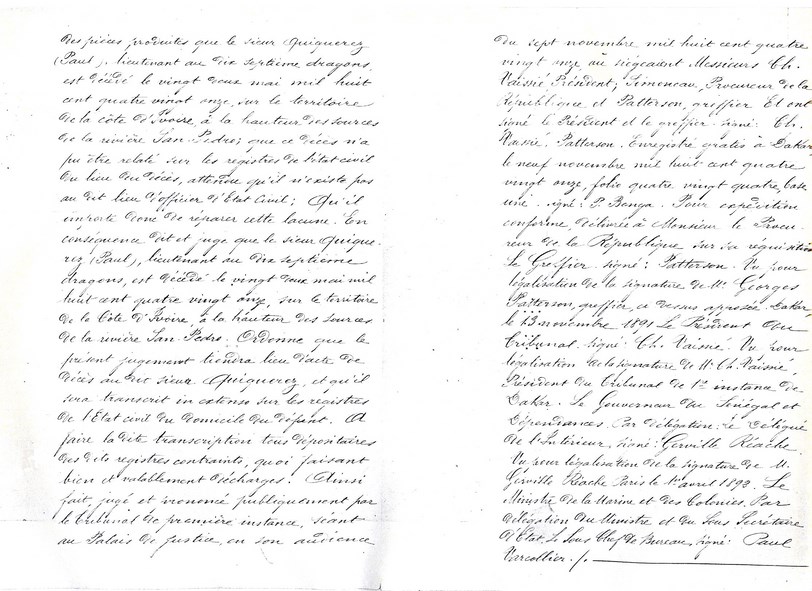 des pièces produites que le sieur Quiquerez
(Paul), lieutenant au dix septième dragons,
est décédé le vingt deux mai mil huit
cent quatre vingt onze, sur le territoire
de la côte d'Ivoire, à la hauteur des sources
de la rivière San-Pedro; que ce décès n'a
pu être relaté sur les registres de l'état civil
du lieu du décès, attendu qu'il n'existe pas
au dit lieu d'officier d'Etat Civil; Qu'il
importe donc de réparer cette lacune. En
conséquence dit et juge que le sieur Quique-
rez (Paul), lieutenant au dix septième
dragons, est décédé le vingt deux mai mil
huit cent quatre vingt onze, sur le territoire
de la Côte d'Ivoire, à la hauteur des sources
de la rivière San-Pedro. Ordonne que le
présent jugement tiendra lieu d'acte de
décès au dit sieur Quiquerez, et qu'il
sera transcrit in extenso sur les registres
de l'Etat civil du domicile du défunt. A
faire la dite transcription tous dépositaires
des dits registres contraints, quoi faisant
bien et valablement déchargés. Ainsi
fait, jugé et prononcé publiquement par
le Tribunal de première instance, séant
au Palais de Justice, en son audience
du sept novembre mil huit cent quatre
vingt onze où siégeaient Messieurs Ch.
Vaissié Président; Simoneau, Procureur de la
République et Patterson, greffier. Et ont
signé le Président et le greffier. signé: Ch.
Vaissié. Patterson. Enregistré gratis à Dakar
le neuf novembre mil huit cent quatre
vingt onze, folio quatre vingt quatre, case
une. signé: P. Banga. Pour expédition
conforme, délivrée à Monsieur le Procu-
reur de la République sur sa réquisition
Le Greffier. signé: Patterson. Vu pour
légalisation de la signature de Mr. Georges
Patterson, greffier, ci dessus apposée. Dakar,
le 13 novembre 1891. Le Président du
Tribunal. signé: Ch. Vaissié. Vu pour
légalisation de la signature de Mr. Ch. Vaissié,
Président du Tribunal de 1re instance de
Dakar. Le Gouverneur du Sénégal et
Dépendances. Par délégation: le Délégué
de l'Intérieur, signé: Gerville Réache.
Vu pour légalisation de la signature de M.
Gerville Réache Paris le 1er avril 1892. Le
Ministre de la Marine et des Colonies, Par
délégation du Ministre et du Sous Secrétaire
d'Etat, Le Sous Chef de Bureau, signé: Paul
Varcollier ./.